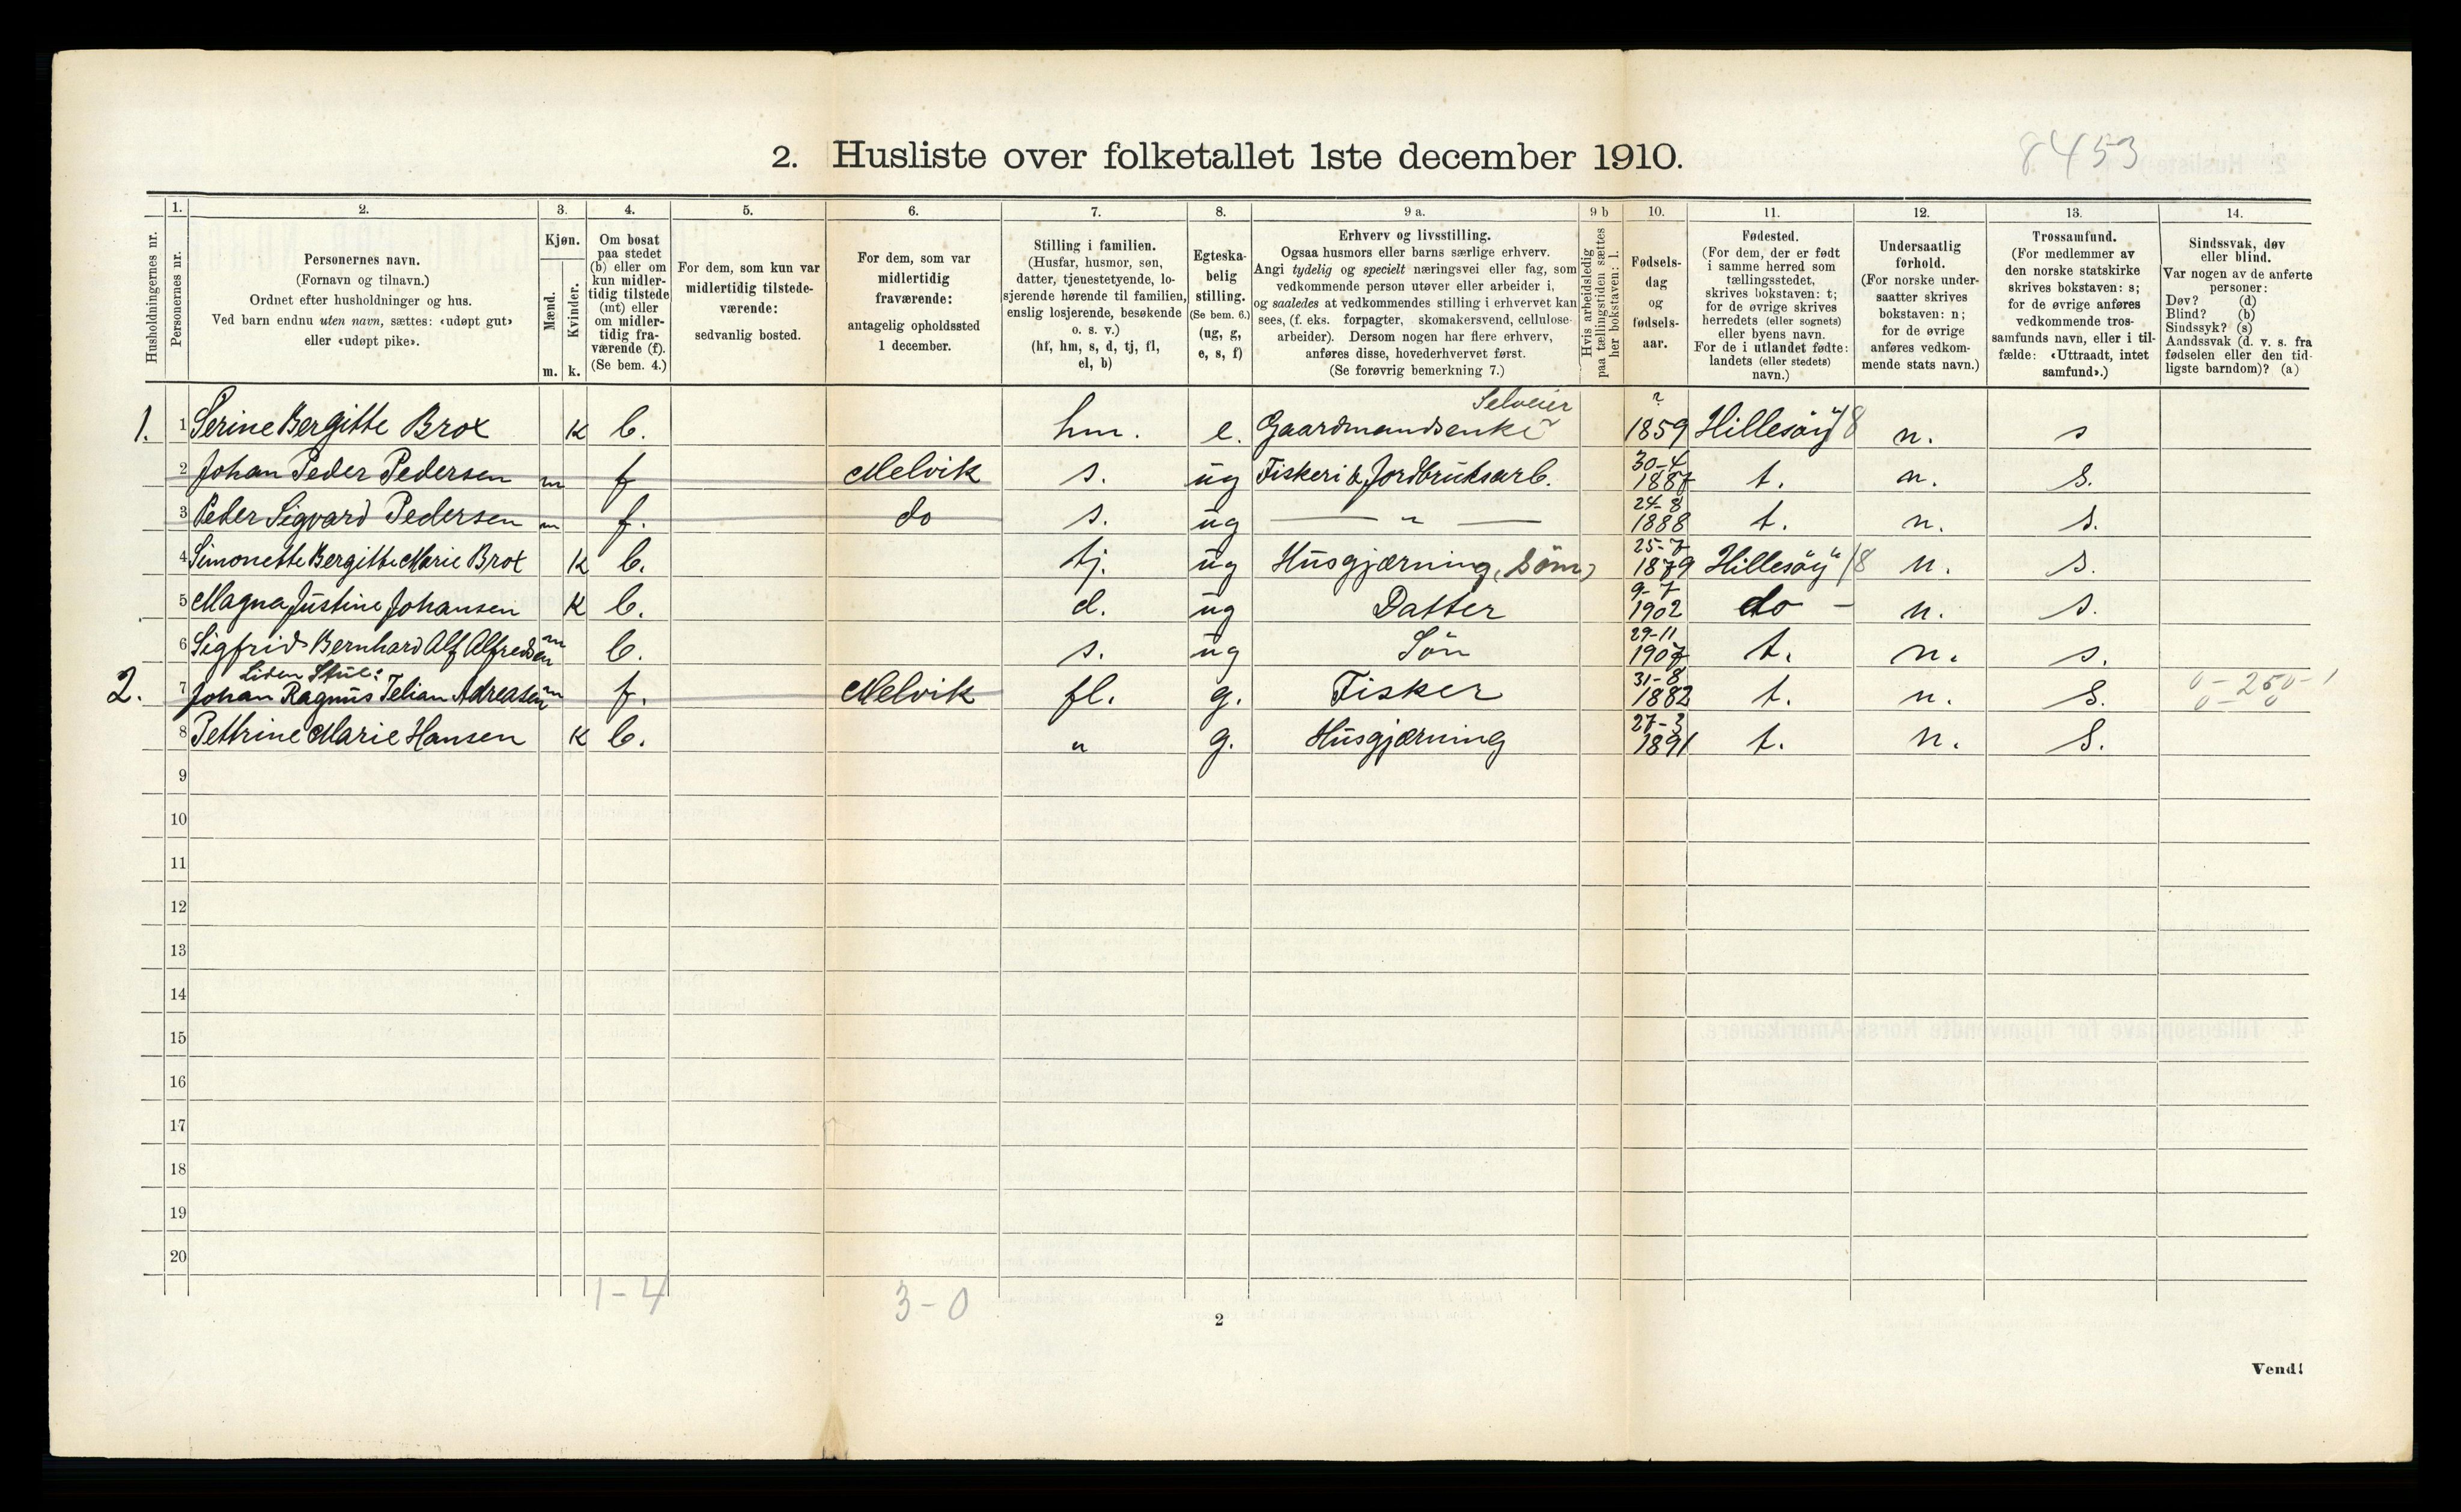 2. Husliste over folketallet 1ste december 1910.
8453
Husholdningernes nr.
1. Personernes nr.
2. Personernes navn. (Fornavn og tilnavn.) Ordnet efter husholdninger og hus. Ved barn endnu uten navn, sættes: «udøpt gut» eller «udøpt pike».
3. Kjøn. Mænd. m. Kvinder. k.
4. Om bosat paa stedet (b) eller om kun midlertidig tilstede (mt) eller om midlertidig fraværende (f). (Se bem. 4.)
5. For dem, som kun var midlertidig tilstedeværende: sedvanlig bosted.
6. For dem, som var midlertidig fraværende: antagelig opholdssted 1 december.
7. Stilling i familien. (Husfar, husmor, søn, datter, tjenestetyende, losjerende hørende til familien, enslig losjerende, besøkende o. s. v.) (hf, hm, s, d, tj, fl, el, b)
8. Egteskabelig stilling. (Se bem. 6.) (ug, g, e, s, f)
9 a. Erhverv og livsstilling. Ogsaa husmors eller barns særlige erhverv. Angi tydelig og specielt næringsvei eller fag, som vedkommende person utøver eller arbeider i, og saaledes at vedkommendes stilling i erhvervet kan sees, (f. eks. forpagter, skomakersvend, cellulosearbeider). Dersom nogen har flere erhverv, anføres disse, hovederhvervet først. (Se forøvrig bemerkning 7.)
9 b Hvis arbeidsledig paa tællingstiden sættes her bokstaven: l.
10. Fødselsdag og fødselsaar.
11. Fødested. (For dem, der er født i samme herred som tællingsstedet, skrives bokstaven: t; for de øvrige skrives herredets (eller sognets) eller byens navn. For de i utlandet fødte: landets (eller stedets) navn.)
12. Undersaatlig forhold. (For norske undersaatter skrives bokstaven: n; for de øvrige anføres vedkommende stats navn.)
13. Trossamfund. (For medlemmer av den norske statskirke skrives bokstaven: s; for de øvrige anføres vedkommende trossamfunds navn, eller i tilfælde: «Uttraadt, intet samfund».)
14. Sindssvak, døv eller blind. Var nogen av de anførte personer: Døv? (d) Blind? (b) Sindssyk? (s) Aandssvak (d. v. s. fra fødselen eller den tidligste barndom)? (a)
1. 1 Serine Bergitte Brox K b. hm. e. Gaardmandsenke Selveier ? 1859 Hillesöy 18 n. s
2 Johan Peder Pedersen m f Melvik s. ug Fiskeri & Jordbruksarb. 30-4 1887 t. n. s.
3 Peder Sigvard Pedersen m f. do s. ug — " — 24-8 1888 t. n. s.
4 Simonette Bergitte Marie Brox K b. tj. ug Husgjærning, (Söm) 25-7 1879 Hillesöy 18 n. s.
5 Magna Justine Johansen K b. d. ug Datter 9-7 1902 do - n. s.
6 Sigfrid Bernhard Alf Alfredsen m b. s. ug Sön 29-11 1907 t. n. s.
Liden Stue:
2. 7 Johan Ragnus Telian Adreasen m f. Melvik fl. g. Fisker 31-8 1882 t. n. s. 0-250-1 0-0
8 Pettrine Marie Hansen K b. " g. Husgjærning 27-3 1891 t. n. s.
9
10
11
12
13
14
15
16
17
18
19
20
1-4
3-0
2
Vend!